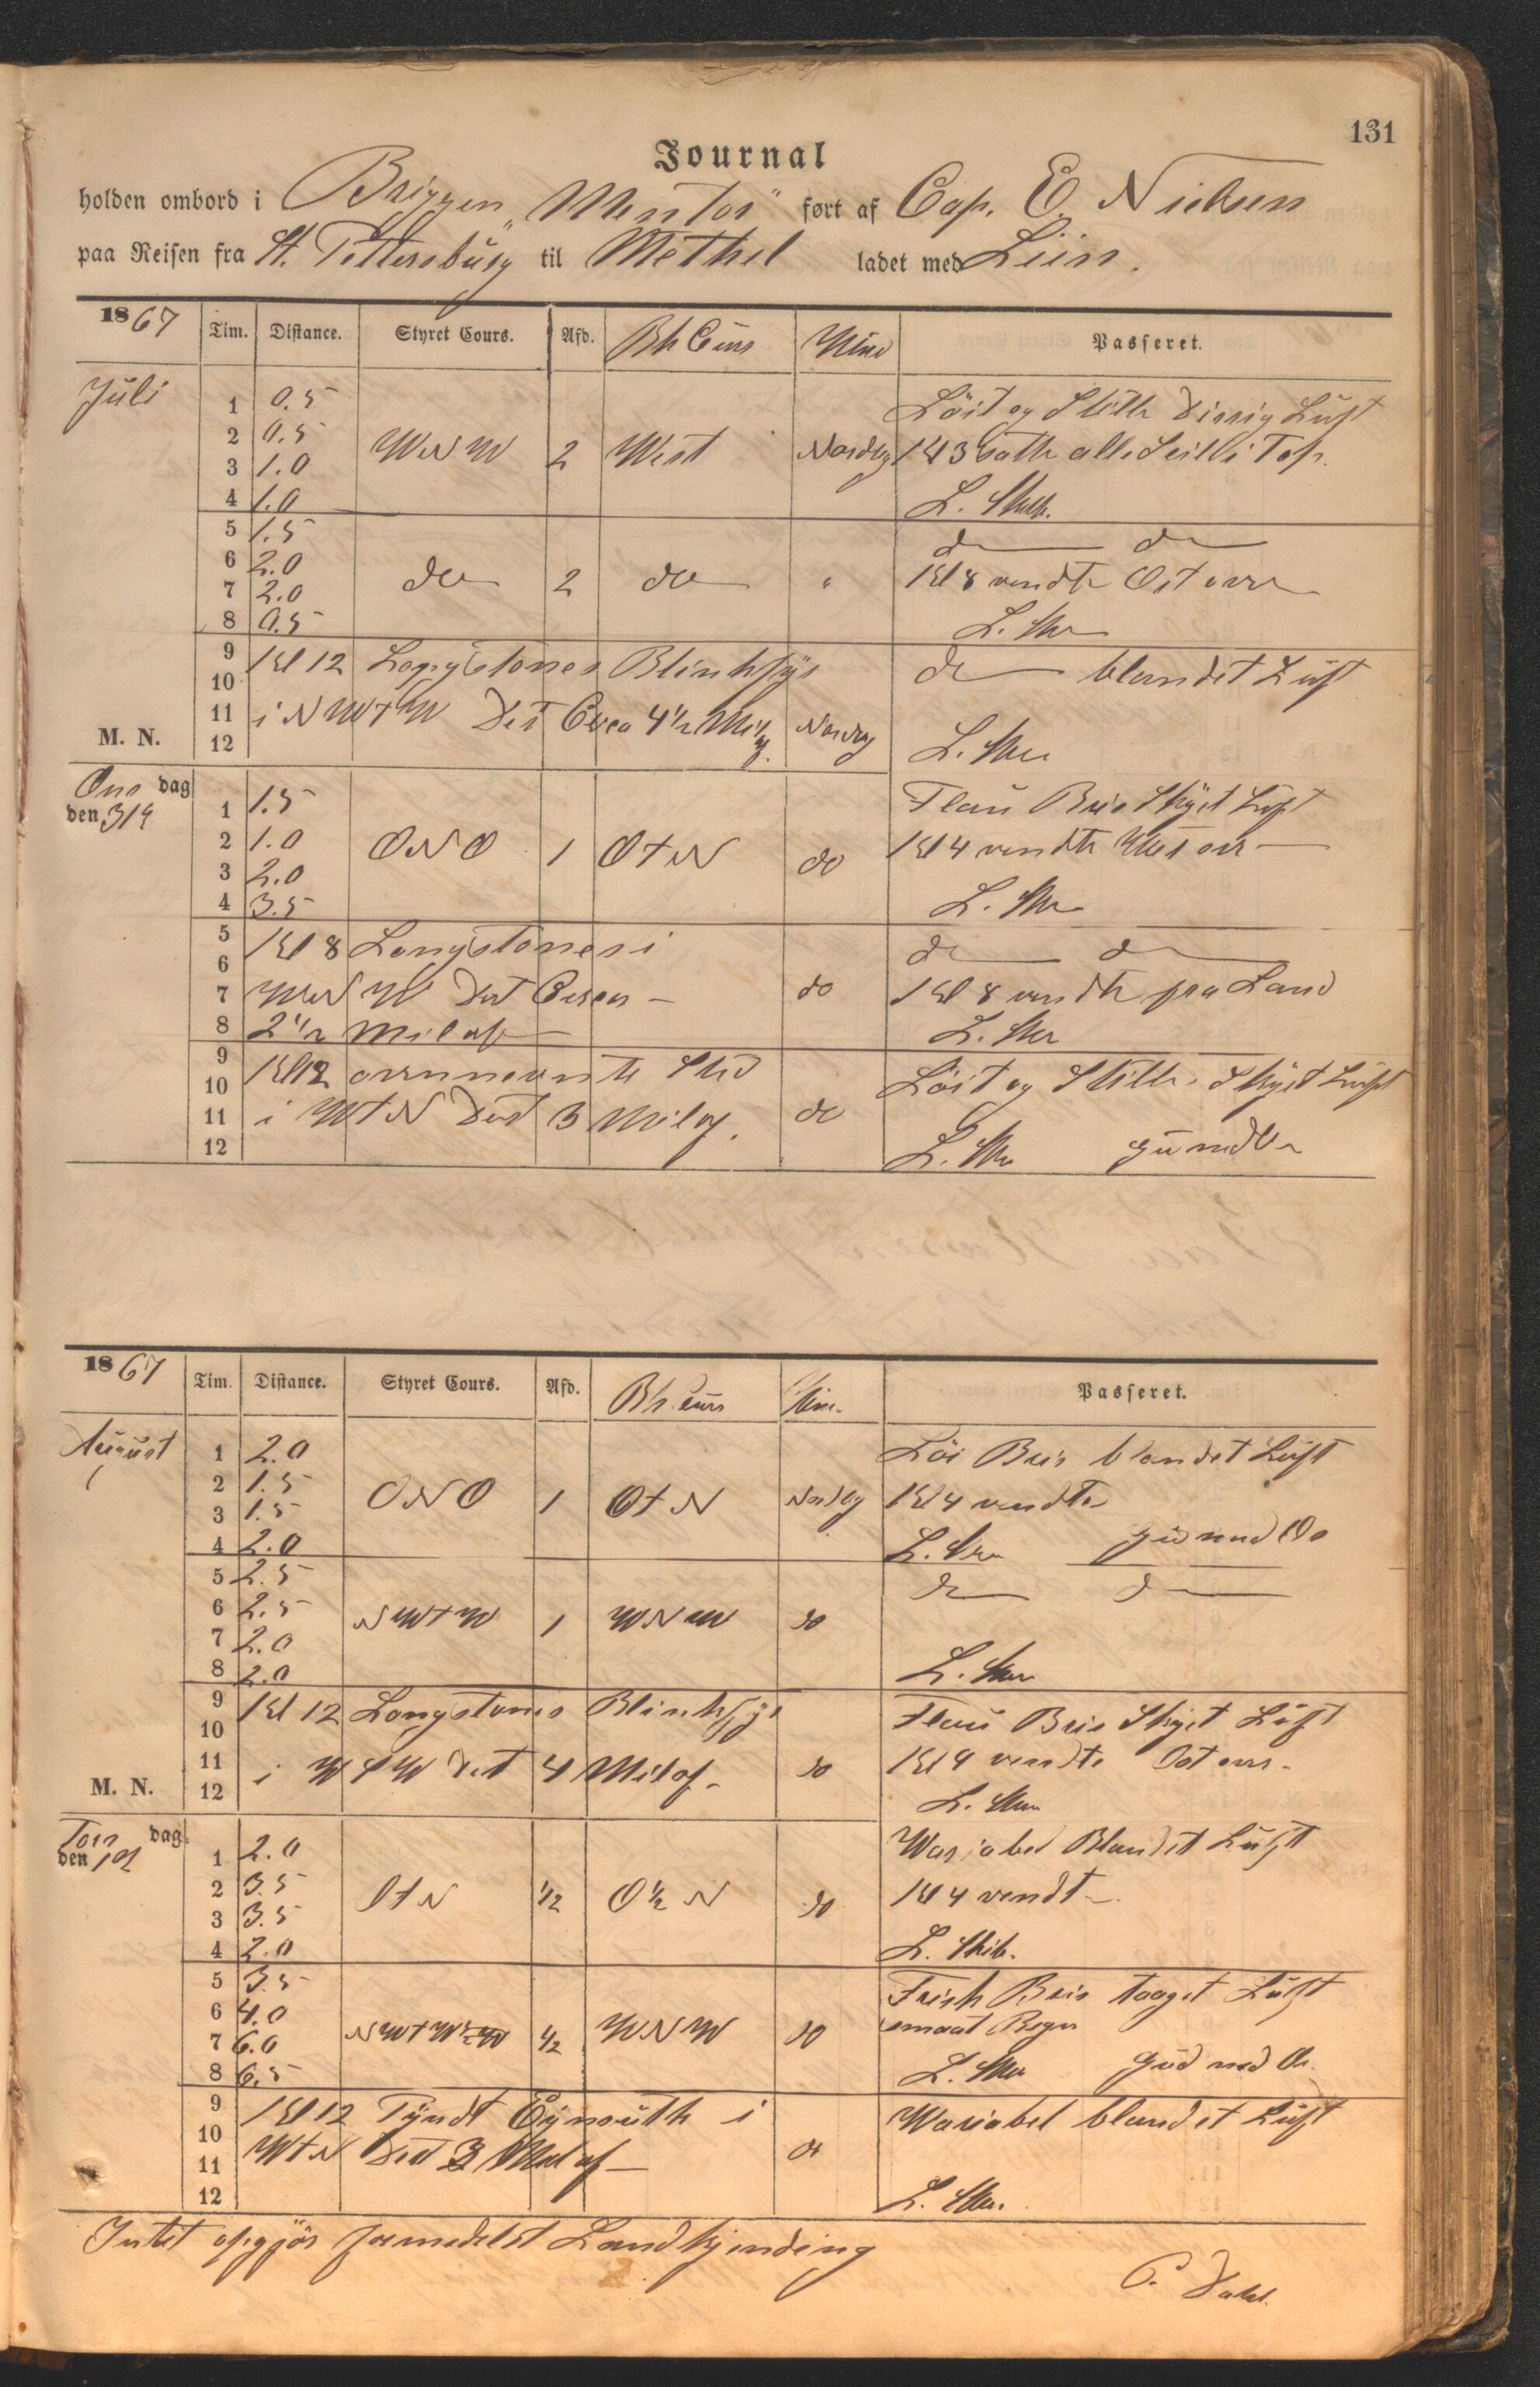 131
Journal
holden ombord i Briggen „Mentor" ført af Cap. E. Nielsen
paa Reisen fra St. Pettersburg til Methel ladet med Liin.
1867 Tim. Distance. Styret Cours. Afd. Bh Cuurs Wind Passeret.
Juli
1 0.5 Löit og Stille Diesig Luft
2 0.5 WNW 2 West Nordlig Kl 3 satte alle Seil i Top.
3 1.0
4 1.0 L. Skib.
5 1.5 do do
6 2.0 do 2 do " Kl 8 vendte Ost over
7 2.0
8 0.5 L. Skb
9 Kl 12 Longstones Blinkfyr do blandet Luft
10
11 i NWtW Dist Circa 4½ Mil af. Nordlig
M. N. 12 L. Skb
Ons dag
den 31te
1 1.5 Flau Bris Skyet Luft
2 1.0 ONO 1 OtN do Kl 4 vendte West over
3 2.0
4 3.5 L. Skb
5 Kl 8 Longstones i do do
6
7 WNW Dist Circa do Kl 8 vendte fra Land
8 2½ Mil af L. Skb
9 Kl 12 ovennevnte Sted Löit og Stille. Skyet Luft
10
11 i WtN Dist 3 Mil af. do
12 L. Skb Gud med Os
1867 Tim. Distance. Styret Cours. Afd. Bh. Cuurs Win. Passeret.
August
1 2.0 Löi Bris blandet Luft
2 1.5 ONO 1 OtN Nordlig Kl 4 vendte
3 1.5
4 2.0 L. Skb Gud med Os
5 2.5 do do
6 2.5 NWtW 1 WNW do
7 2.0
8 2.0 L. Skb
9 Kl 12 Longstones Blinkfyr Flau Bris Skyet Luft
10
11 i WSW Dist 4 Mil af. do Kl 9 vendte Ost over.
M. N. 12 L. Skb
Tors dag
den 1ste
1 2.0 Wariabel Blandet Luft
2 3.5 OtN ½ O½N do Kl 4 vendt
3 3.5
4 2.0 L. Skib.
5 3.5 Frisk Bris taaget Luft
6 4.0 NWtW½W ½ WNW do smaat Regn
7 6.0
8 6.5 L. Skb Gud med Os.
9 Kl 12 Tyndt Eymouth i Wariabel blandet Luft
10
11 WtN Dist 3 Mil af do
12 L. Skb.
Intet opgjör formedelst Landkjending
P. Dahl.